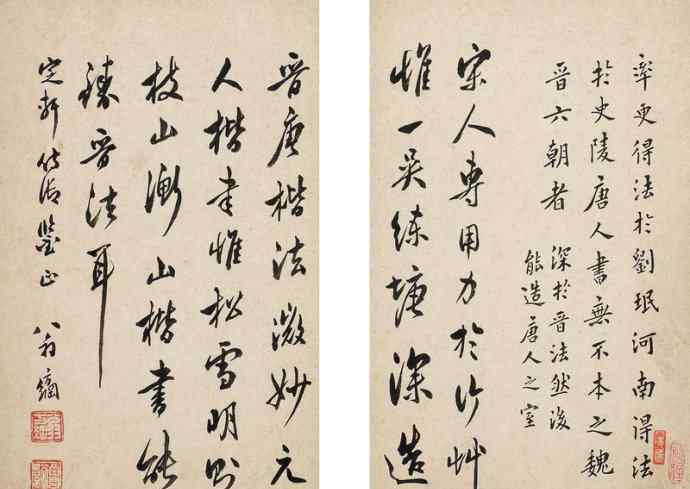 率更得法於劉珉河南得法
於史陵唐人書無不本之魏
晋六朝者
深於晋法然後
能造唐人之室
宋人專用力於行艸
惟一吳練塘深造
晋唐楷法微妙元
人楷書惟松雪明則
枝山衡山楷書能
臻晋法耳
定軒侍御鑒正